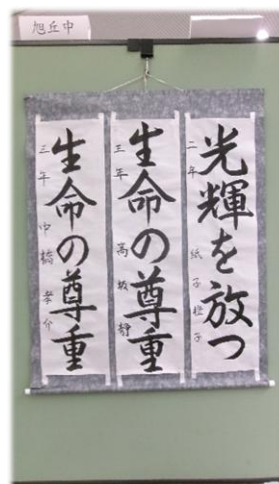 旭丘中
光輝を放つ
二年 紙子橙子
生命の尊重
三年 高坂静
生命の尊重
三年 中橋孝介